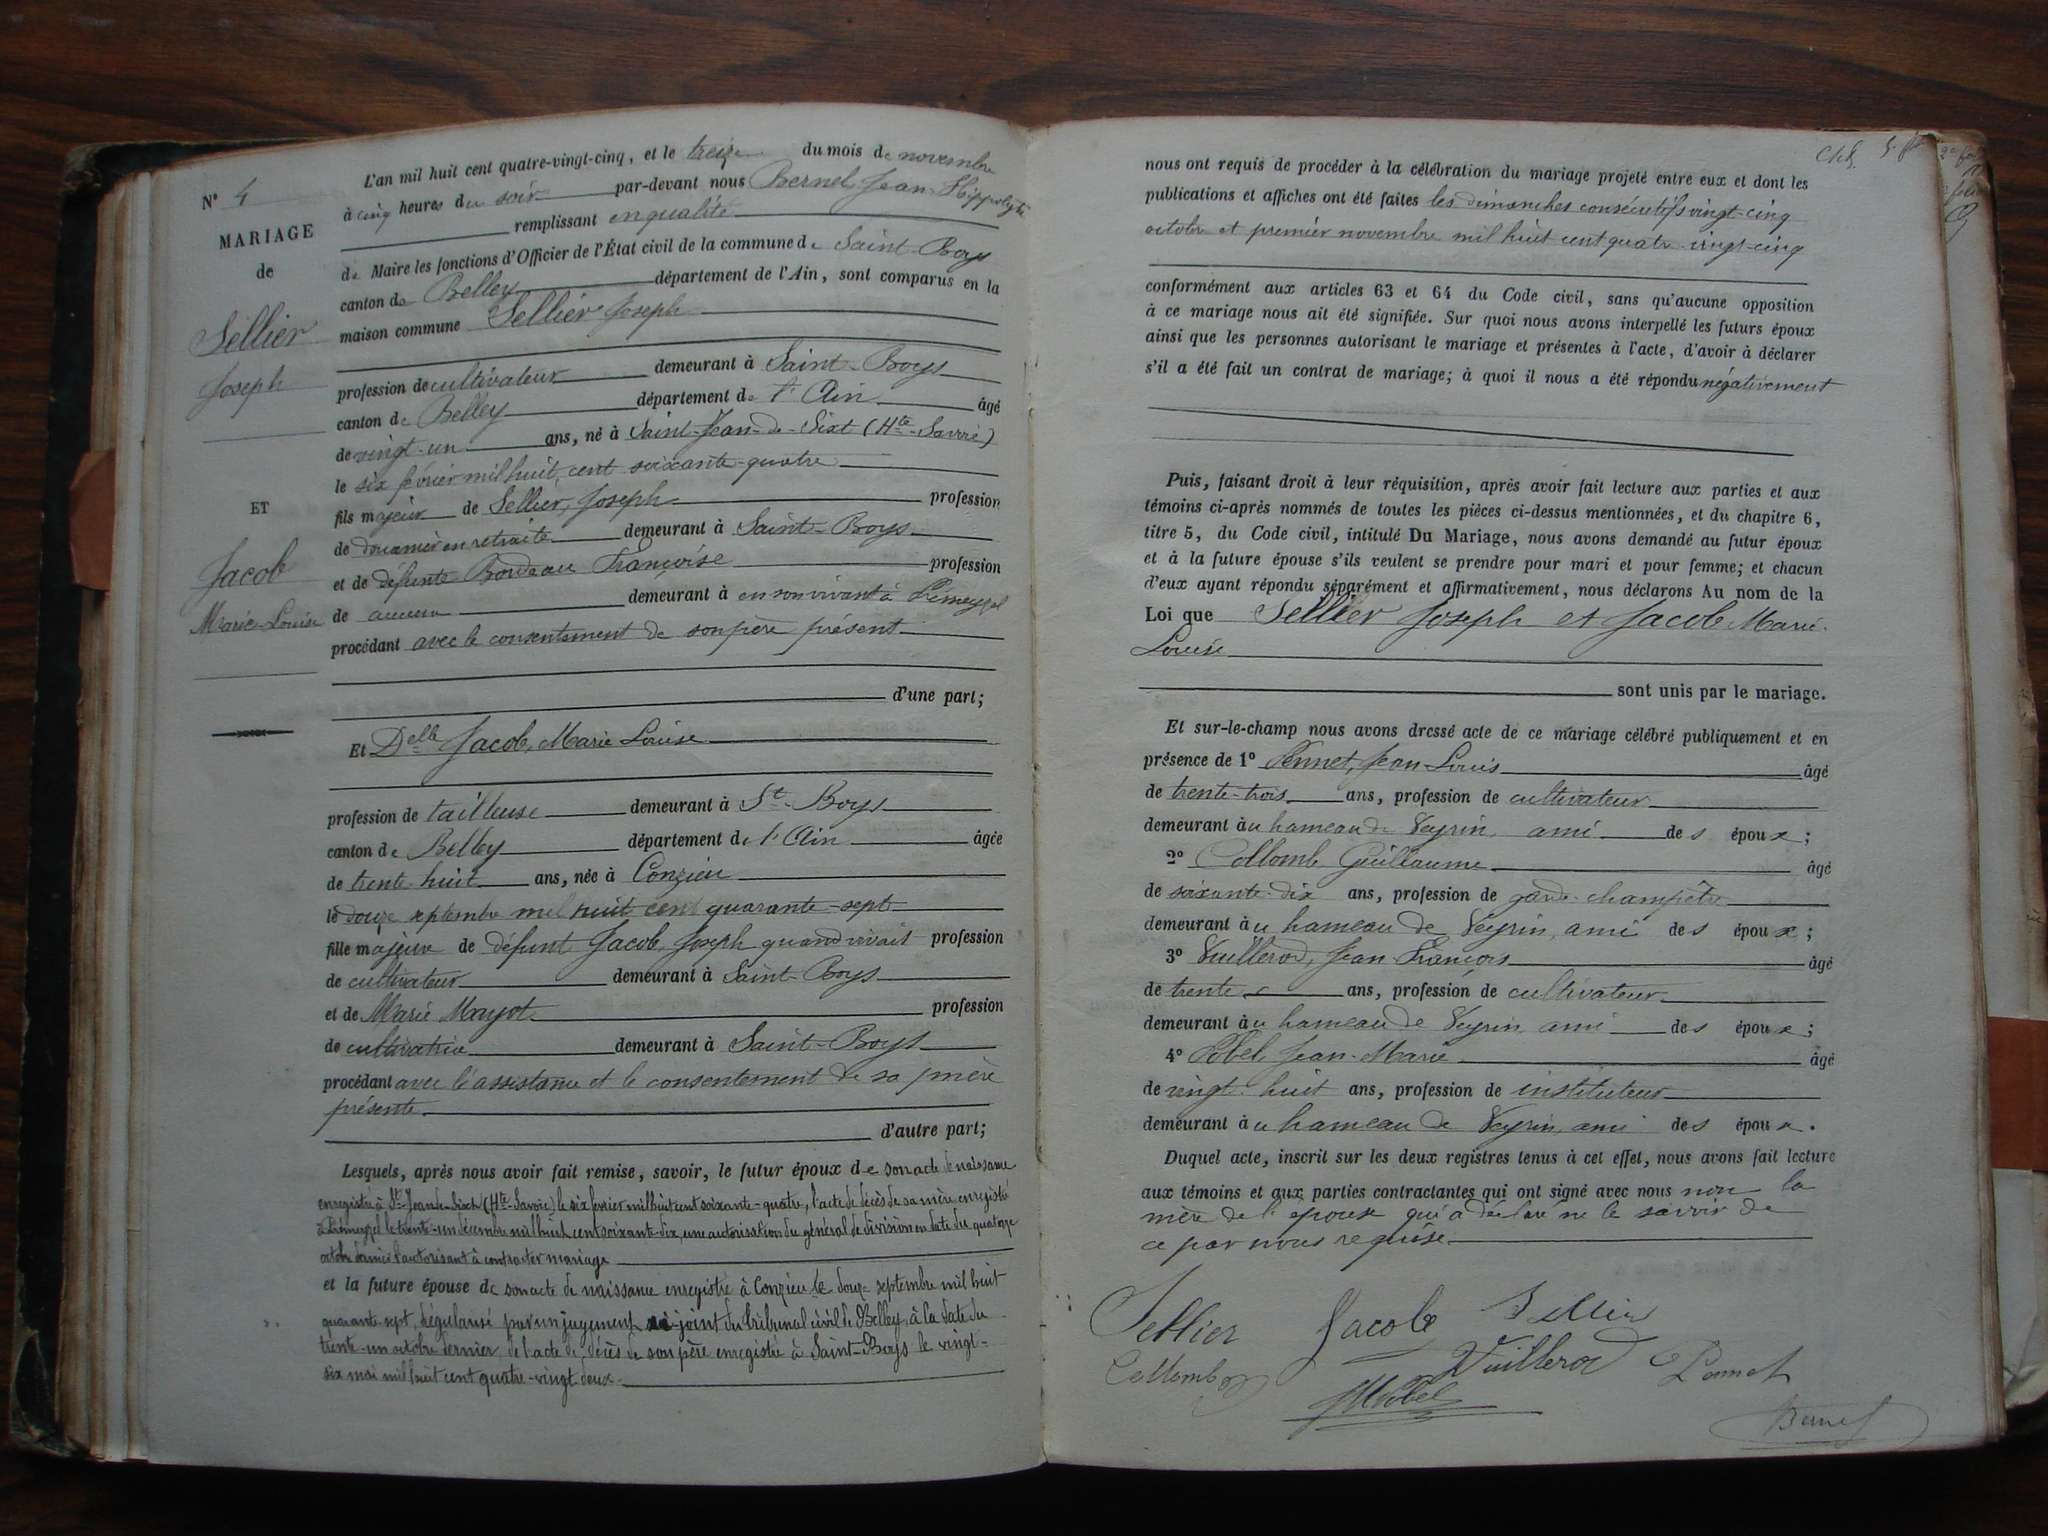 N° 4
MARIAGE
de
Sellier
Joseph
ET
Jacob
Marie-Louise
L'an mil huit cent quatre-vingt-cinq, et le treize du mois de novembre
à cinq heures du soir par-devant nous Bernel, Jean-Hippolyte
remplissant en qualité
de Maire les fonctions d'Officier de l'État civil de la commune de Saint-Boys
canton de Belley département de l'Ain, sont comparus en la
maison commune Sellier Joseph
profession de cultivateur demeurant à Saint-Boys
canton de Belley département de l'Ain âgé
de vingt-un ans, né à Saint-Jean-de-Sixt (Hte-Savoie)
le six février mil huit cent soixante-quatre
fils majeur de Sellier, Joseph profession
de douanier en retraite demeurant à Saint-Boys
et de défunte Bordeau Françoise profession
de aucune demeurant à en son vivant à
procédant avec le consentement de son père présent
d'une part;
Et Delle Jacob, Marie Louise
profession de tailleuse demeurant à St-Boys
canton de Belley département de l'Ain âgée
de trente-huit ans, née à Conzieu
le douze septembre mil huit cent quarante-sept
fille majeure de défunt Jacob, Joseph quand vivait profession
de cultivateur demeurant à Saint-Boys
et de Marie Mayot profession
de cultivatrice demeurant à Saint-Boys
procédant avec l'assistance et le consentement de sa mère
présente.
d'autre part;
Lesquels, après nous avoir fait remise, savoir, le futur époux de son acte de naissance
enregistré à St Jean de Sixt (Hte-Savoie) le six février mil huit cent soixante-quatre, l'acte de décès de sa mère enregistré
à le trente-un décembre mil huit cent soixante-dix, une autorisation du général de division en date du quatorze
octobre dernier l'autorisant à contracter mariage
et la future épouse de son acte de naissance enregistré à Conzieu le douze septembre mil huit
quarante-sept, régularisé par un jugement ci-joint du tribunal civil de Belley, à la date du
trente-un octobre dernier, de l'acte de décès de son père enregistré à Saint-Boys le vingt-
six mai mil huit cent quatre-vingt deux.
nous ont requis de procéder à la célébration du mariage projeté entre eux et dont les
publications et affiches ont été faites les dimanches consécutifs vingt-cinq
octobre et premier novembre mil huit cent quatre-vingt-cinq
conformément aux articles 63 et 64 du Code civil, sans qu'aucune opposition
à ce mariage nous ait été signifiée. Sur quoi nous avons interpellé les futurs époux
ainsi que les personnes autorisant le mariage et présentes à l'acte, d'avoir à déclarer
s'il a été fait un contrat de mariage; à quoi il nous a été répondu négativement
Puis, faisant droit à leur réquisition, après avoir fait lecture aux parties et aux
témoins ci-après nommés de toutes les pièces ci-dessus mentionnées, et du chapitre 6,
titre 5, du Code civil, intitulé Du Mariage, nous avons demandé au futur époux
et à la future épouse s'ils veulent se prendre pour mari et pour femme; et chacun
d'eux ayant répondu séparément et affirmativement, nous déclarons Au nom de la
Loi que Sellier Joseph et Jacob Marie-
Louise
sont unis par le mariage.
Et sur-le-champ nous avons dressé acte de ce mariage célébré publiquement et en
présence de 1° Jean-Louis âgé
de trente-trois ans, profession de cultivateur
demeurant à u hameau de Veyrin, ami des époux;
2° Collomb Guillaume âgé
de soixante-dix ans, profession de garde-champêtre
demeurant à u hameau de Veyrin, ami des époux;
3° Vuillerod, Jean François âgé
de trente ans, profession de cultivateur
demeurant à u hameau de Veyrin, ami des époux;
4° Jean-Marie âgé
de vingt-huit ans, profession de instituteur
demeurant à u hameau de Veyrin, ami des époux.
Duquel acte, inscrit sur les deux registres tenus à cet effet, nous avons fait lecture
aux témoins et aux parties contractantes qui ont signé avec nous non la
mère de l'épouse qui a déclaré ne le savoir de
ce par nous requise.
Sellier Jacob Sellier
Collomb Vuillerod
Bernel